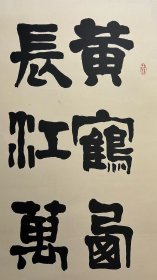 黄鶴西
長江萬